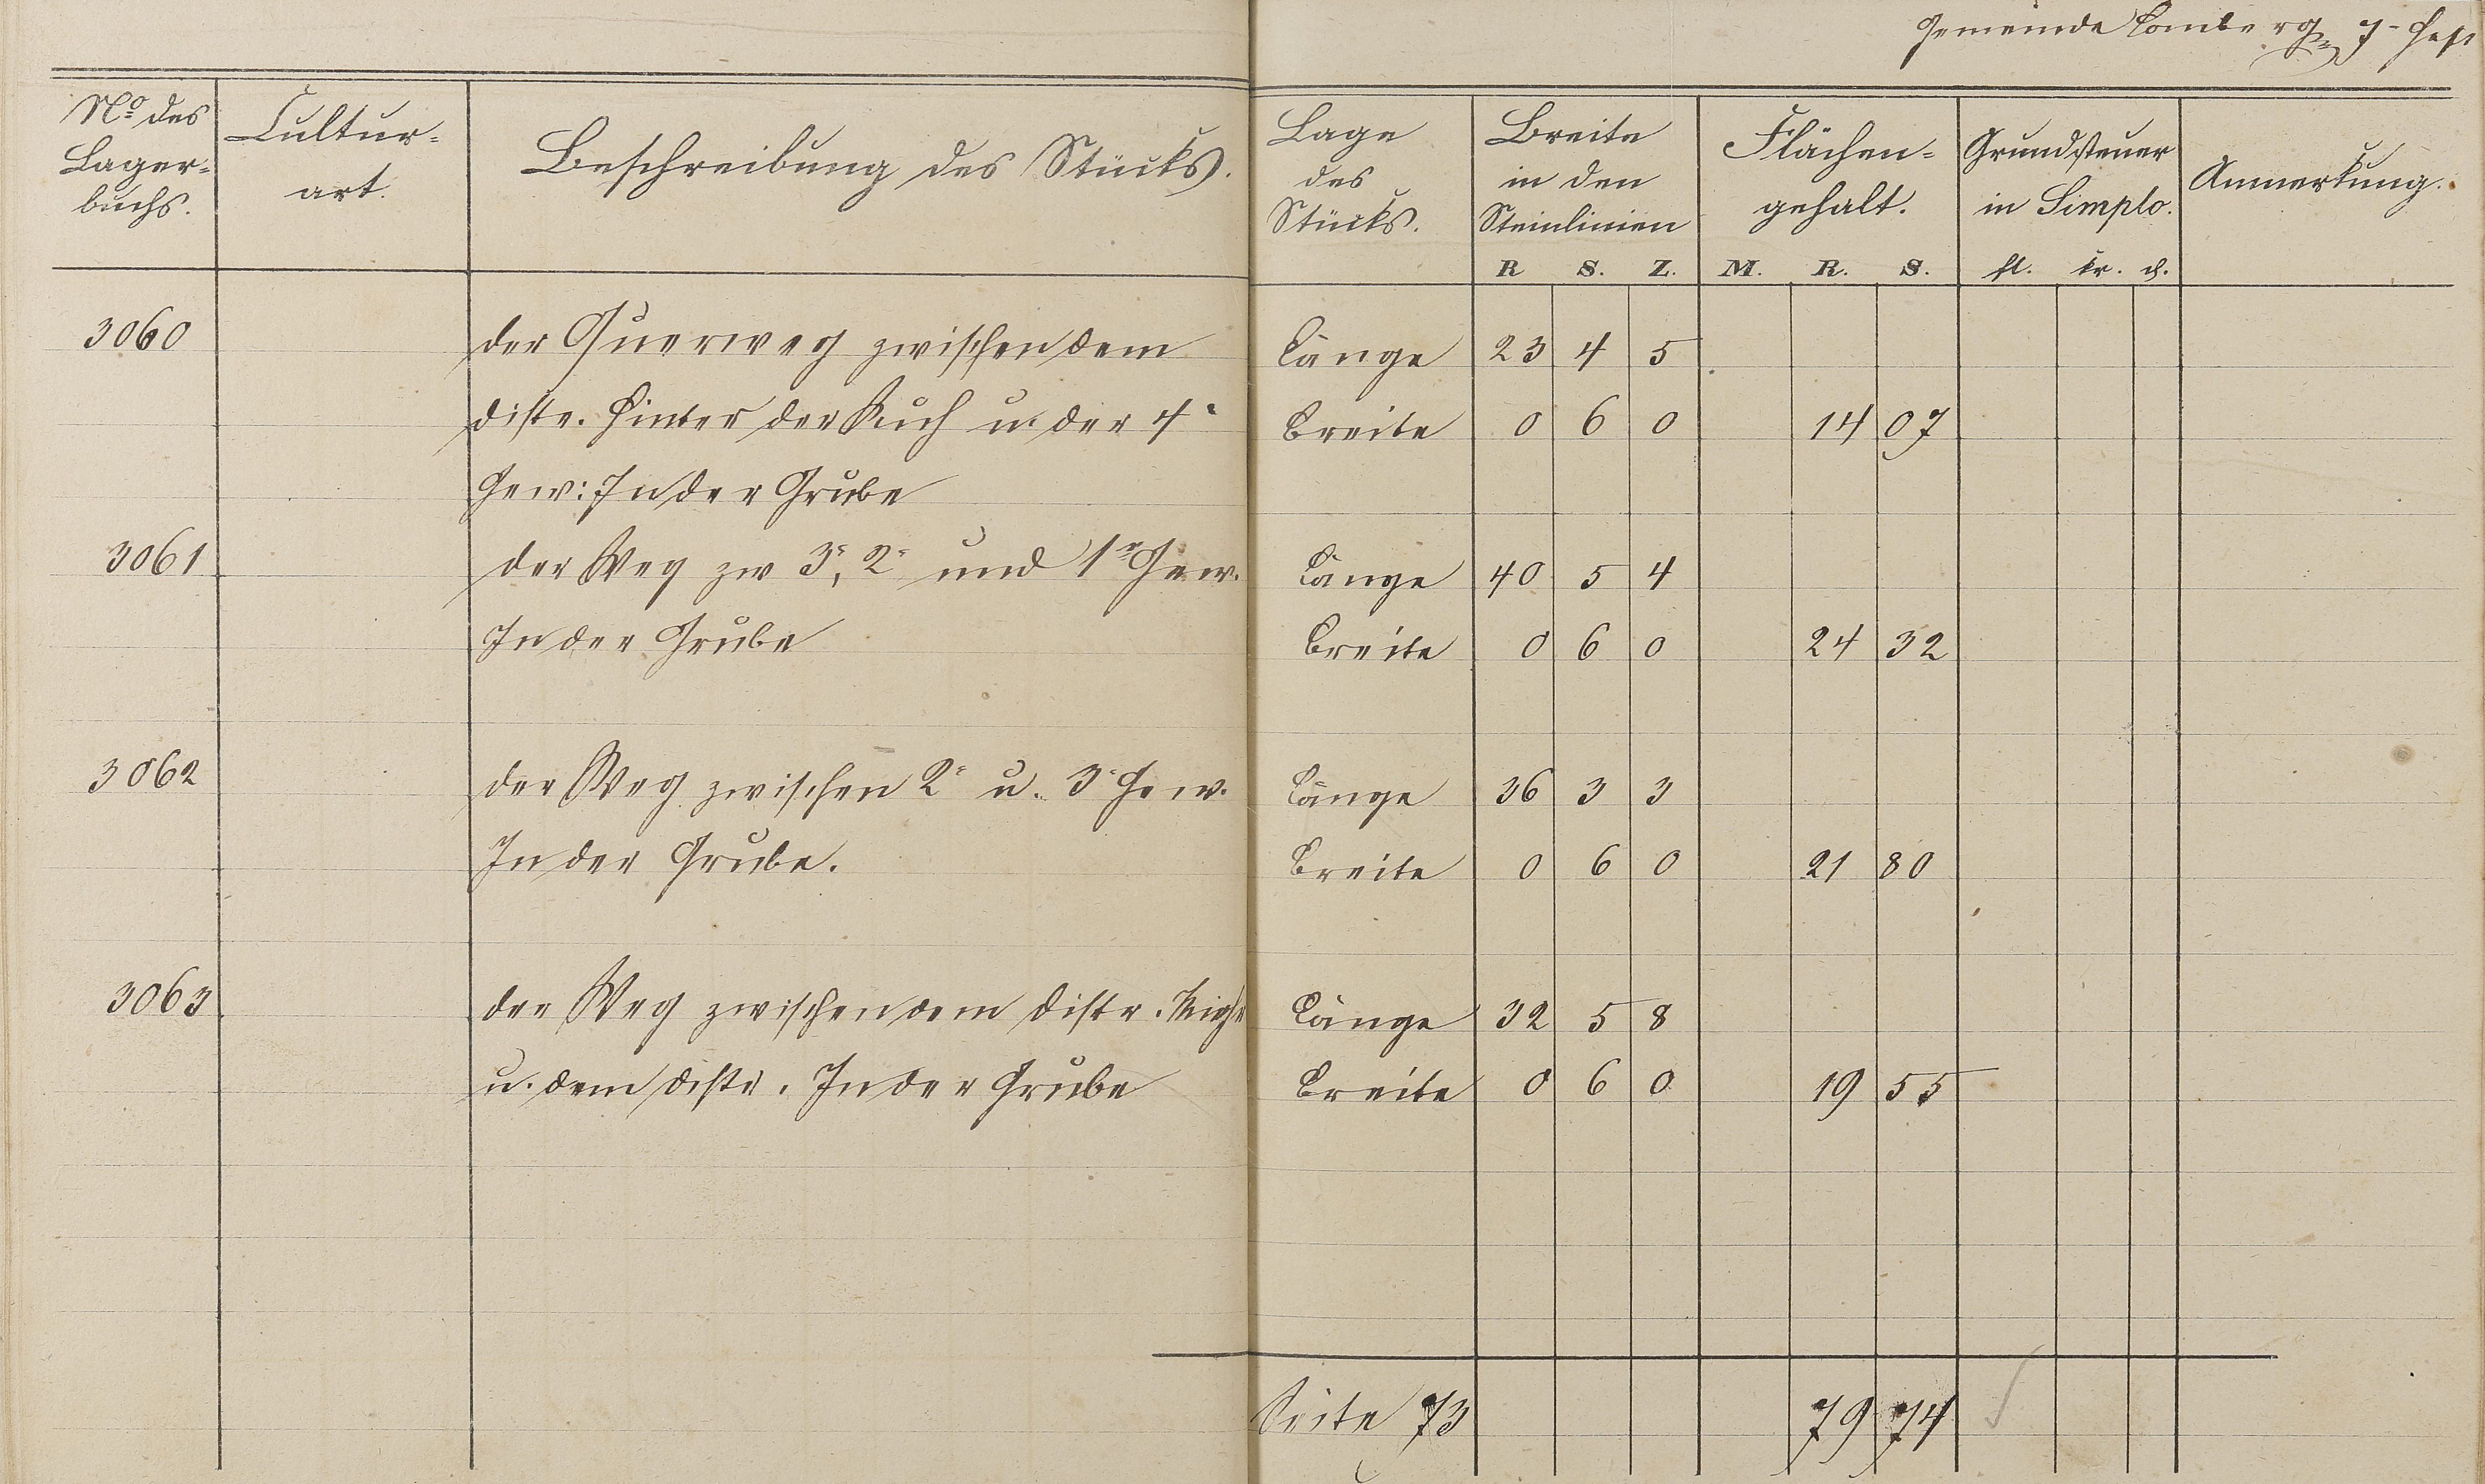 Gemeinde Comberg, 7- Heft
No des Lager-buchs.
Cultur-art.
Beschreibung des Stücks.
Lage des Stücks.
Breite in den Steinlinien
Flächen-gehalt.
Grundsteuer in Simplo.
Anmerkung.
R S. Z. M. R. S. fl. kr. d.
3060 der Querweg zwischen dem Länge 23 4 5
distr. Hinter der Kuh u. der 4- Breite 0 6 0 14 07
Gew: In der Grube
3061 der Weg zw 3-, 2- und 1- Gew. Länge 40 5 4
In der Grube Breite 0 6 0 24 32
3062 der Weg zwischen 2- u. 3- Gew. Länge 36 3 3
In der Grube. Breite 0 6 0 21 80
3063 der Weg zwischen dem distr. Länge 32 5 8
u. dem distr. In der Grube Breite 0 6 0 19 55
Seite 73 79 74